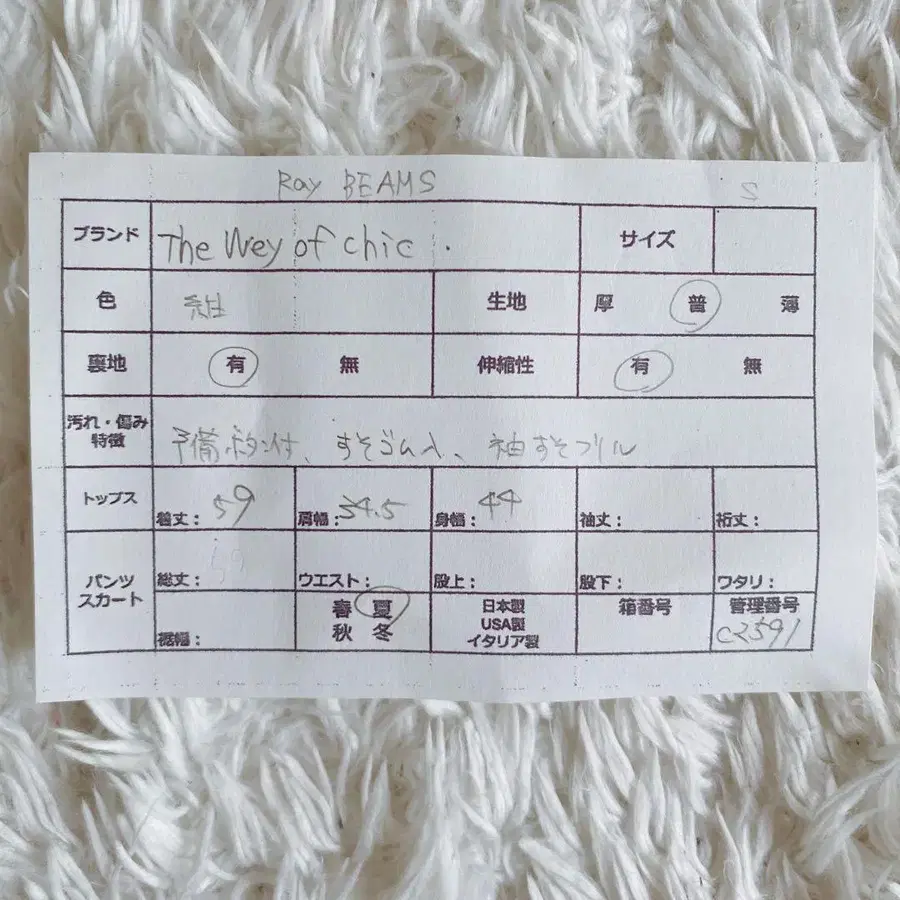 Ray BEAMS S
ブランド The Wey of chic . サイズ
色 生地 厚 普 薄
裏地 有 無 伸縮性 有 無
汚れ・傷み
特徴 予備ボタン付、すそゴム入、袖すそフリル
トップス 着丈: 59 肩幅: 34.5 身幅: 44 袖丈: 裄丈:
パンツ
スカート 総丈: 59 ウエスト: 股上: 股下: ワタリ:
裾幅: 春 夏
秋 冬 日本製
USA製
イタリア製 箱番号 管理番号
C2591